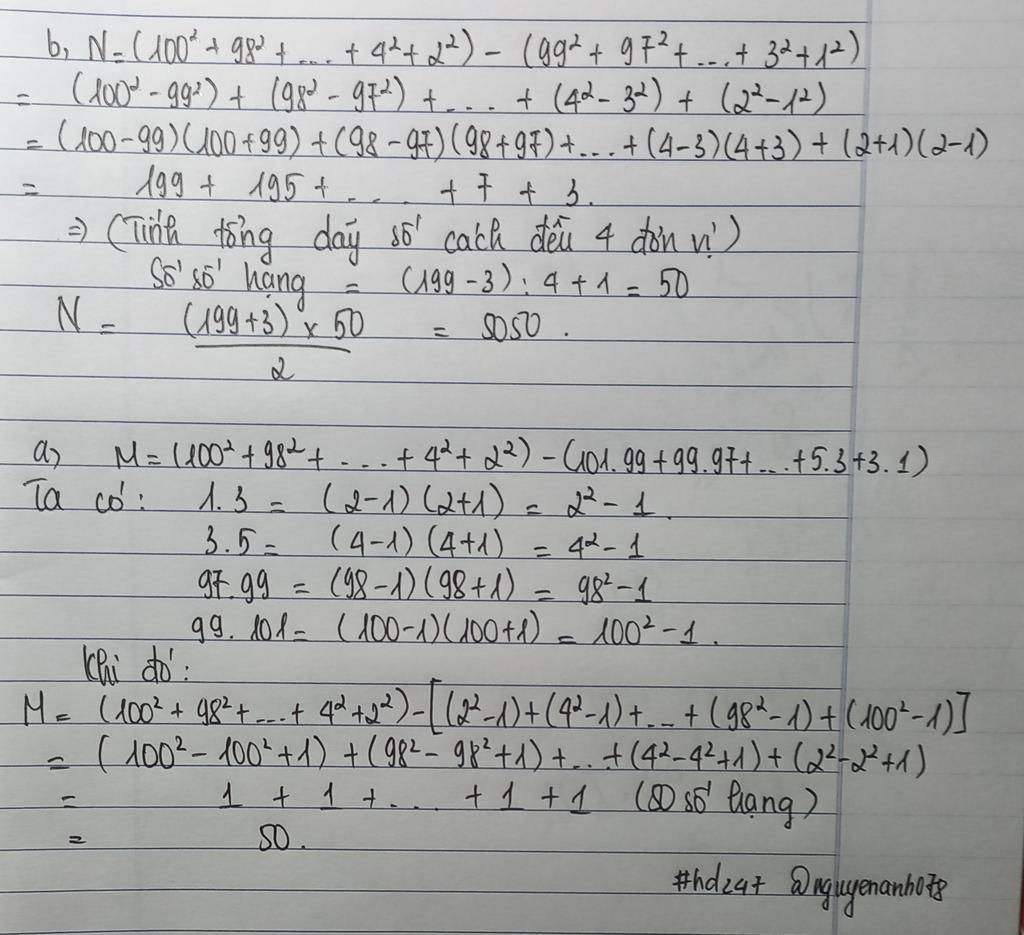 b, N = (100² + 98² + .... + 4² + 2²) - (99² + 97² + ... + 3² + 1²)
= (100² - 99²) + (98² - 97²) + .... + (4² - 3²) + (2² - 1²)
= (100 - 99)(100 + 99) + (98 - 97)(98 + 97) + ... + (4 - 3)(4 + 3) + (2 + 1)(2 - 1)
= 199 + 195 + .... + 7 + 3.
⇒ (Tính tổng dãy số cách đều 4 đơn vị)
Số số hạng = (199 - 3) : 4 + 1 = 50
N = (199 + 3) × 50 = 5050.
2
a, M = (100² + 98² + ... + 4² + 2²) - (101.99 + 99.97 + ... + 5.3 + 3.1)
Ta có: 1.3 = (2 - 1)(2 + 1) = 2² - 1
3.5 = (4 - 1)(4 + 1) = 4² - 1
97.99 = (98 - 1)(98 + 1) = 98² - 1
99.101 = (100 - 1)(100 + 1) = 100² - 1.
Khi đó:
M = (100² + 98² + ... + 4² + 2²) - [(2² - 1) + (4² - 1) + ... + (98² - 1) + (100² - 1)]
= (100² - 100² + 1) + (98² - 98² + 1) + ... + (4² - 4² + 1) + (2² - 2² + 1)
= 1 + 1 + ... + 1 + 1 (50 số hạng)
= 50.
#hd247 @nguyenanh078